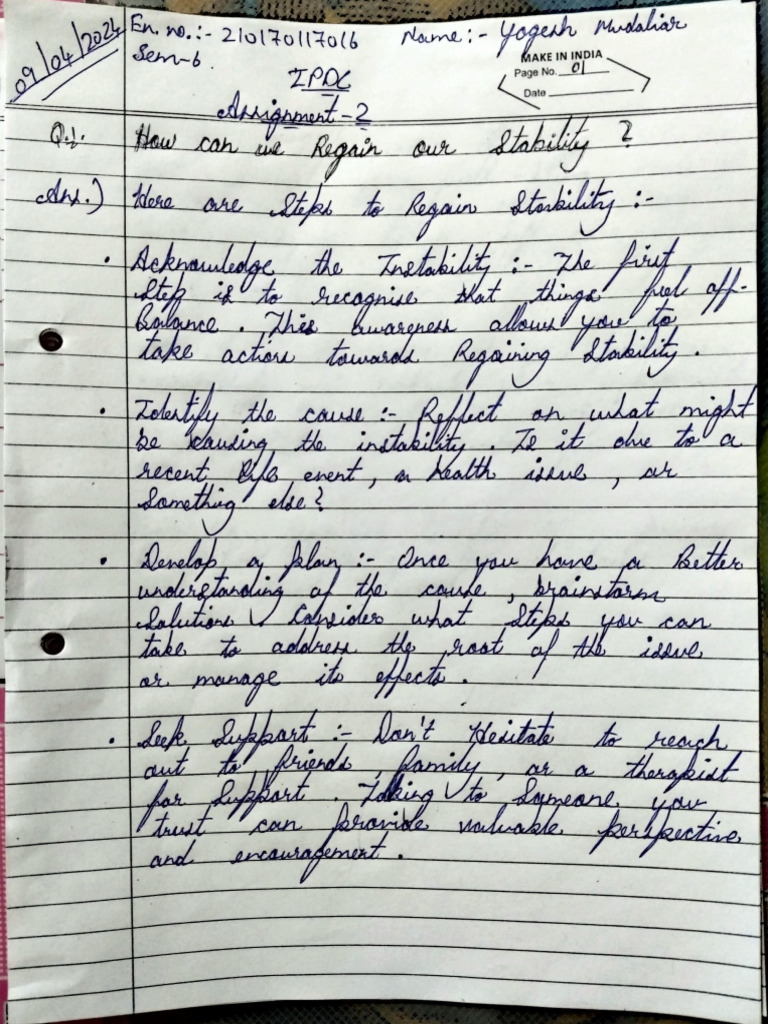 09/04/2024
En. no.:- 210170117016 Name:- Yogesh Mudaliar
Sem-6
MAKE IN INDIA
Page No. 01
Date
IPDC
Assignment-2
Q.1. How can we Regain our Stability ?
Ans.) Here are Steps to Regain Stability :-
• Acknowledge the Instability :- The first
Step is to recognise that things feel off-
Balance. This awareness allows you to
take actions towards Regaining Stability.
• Identify the cause :- Reflect on what might
be causing the instability. Is it due to a
recent life event, a health issue, or
Something else?
• Develop a plan :- Once you have a Better
understanding of the cause, brainstorm
Solutions. Consider what Steps you can
take to address the root of the issue
or manage its effects.
• Seek Support :- Don't Hesitate to reach
out to friends, family, or a therapist
for Support. Talking to Someone you
trust can provide valuable perspective
and encouragement.